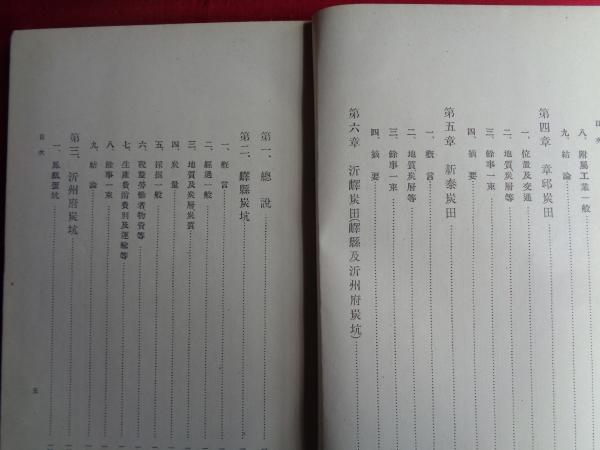 目次
八、附屬工業一般
九、結論
第四章 章邱炭田
一、位置及交通
二、地質炭層等
三、餘事一束
四、摘要
第五章 新泰炭田
一、概言
二、地質炭層等
三、餘事一束
四、摘要
第六章 沂嶧炭田(嶧縣及沂州府炭坑)
第一、總說
第二、嶧縣炭坑
一、概言
二、經過一般
三、地質及炭層炭質
四、炭量
五、採掘一般
六、稅並勞働者物資等
七、生產費價費別及運輸等
八、餘事一束
九、結論
第三、沂州府炭坑
一、鳳凰蛋坑
目次
五